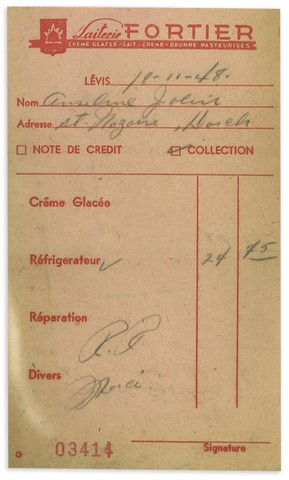 Laiterie FORTIER
CRÈME GLACÉE - LAIT - CRÈME - BEURRE PASTEURISÉS
LÉVIS 19-11-48.
Nom
Adresse St Nazaire, Dorch
NOTE DE CREDIT COLLECTION
Crême Glacée
Réfrigerateur 24 75
Réparation
Divers Merci.
03414 Signature